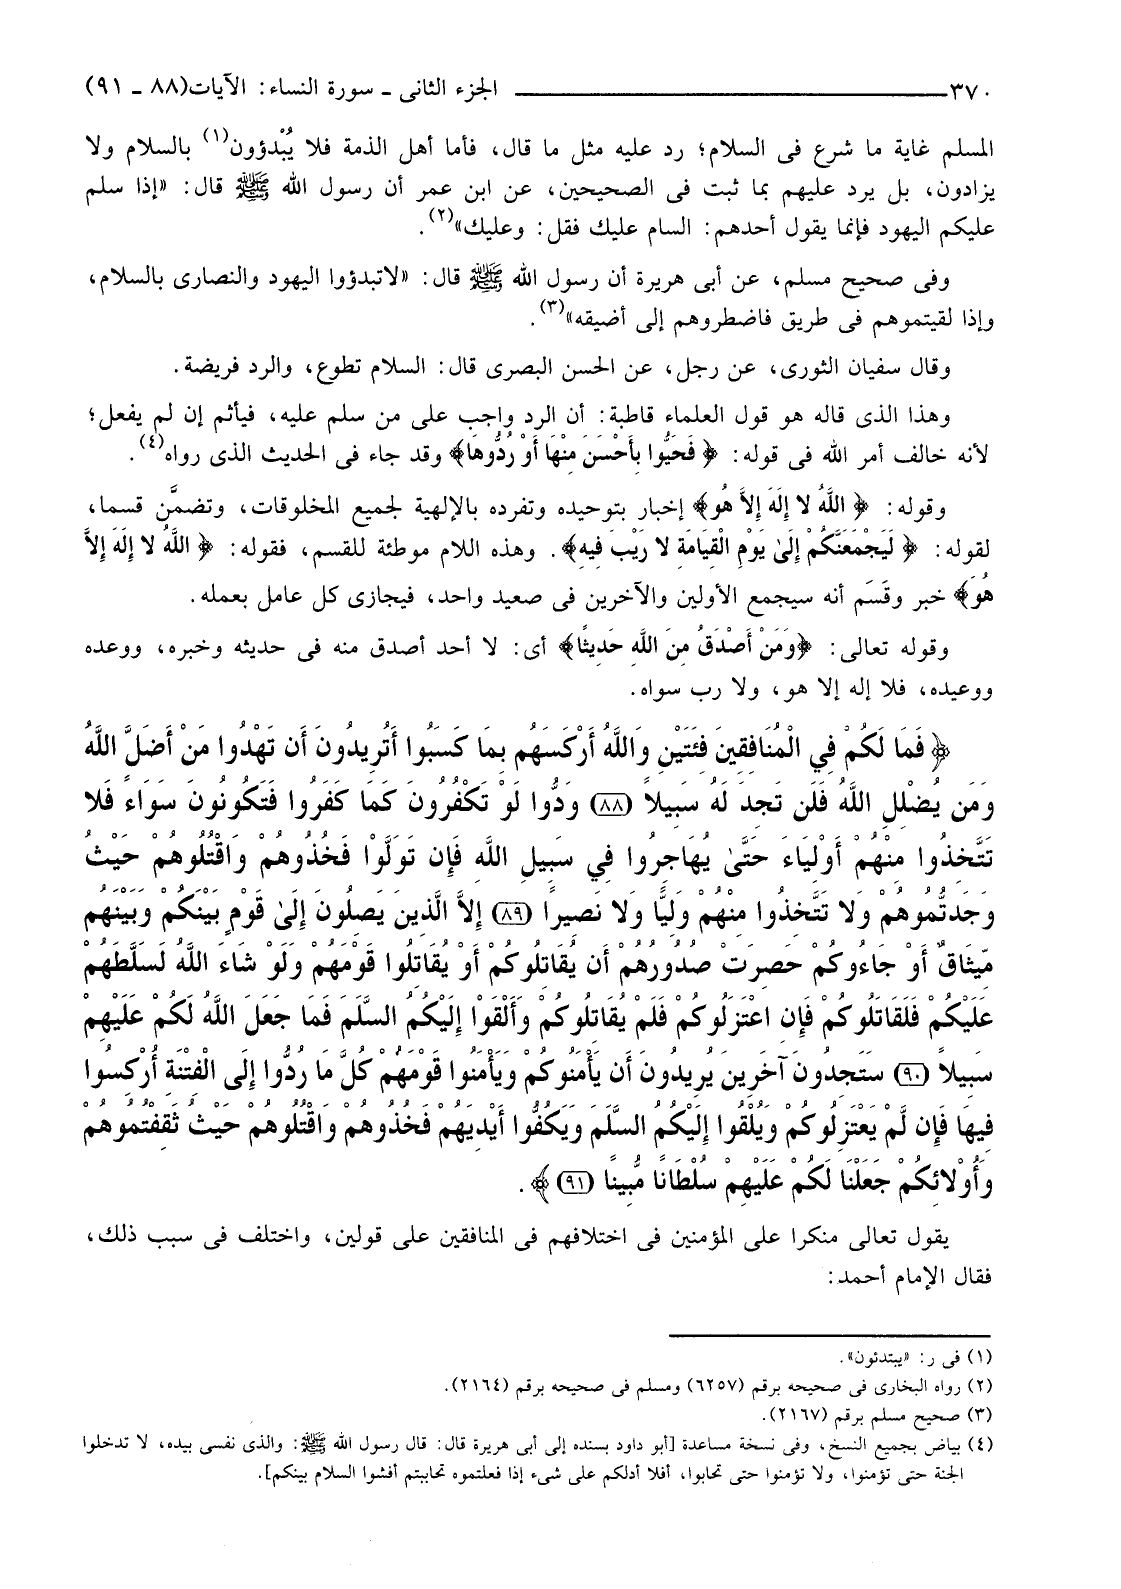 ٣٧٠ ــــــــــ الجزء الثانى ـ سورة النساء: الآيات(٨٨ ـ ٩١)
المسلم غاية ما شرع فى السلام؛ رد عليه مثل ما قال، فأما أهل الذمة فلا يُبْدؤون(١) بالسلام ولا
يزادون، بل يرد عليهم بما ثبت فى الصحيحين، عن ابن عمر أن رسول الله ﷺ قال: «إذا سلم
عليكم اليهود فإنما يقول أحدهم: السام عليك فقل: وعليك»(٢).
وفى صحيح مسلم، عن أبى هريرة أن رسول الله ﷺ قال: «لاتبدؤوا اليهود والنصارى بالسلام،
وإذا لقيتموهم فى طريق فاضطروهم إلى أضيقه»(٣).
وقال سفيان الثورى، عن رجل، عن الحسن البصرى قال: السلام تطوع، والرد فريضة.
وهذا الذى قاله هو قول العلماء قاطبة: أن الرد واجب على من سلم عليه، فيأثم إن لم يفعل؛
لأنه خالف أمر الله فى قوله: ﴿ فَحَيُّوا بِأَحْسَنَ مِنْهَا أَوْ رُدُّوهَا﴾ وقد جاء فى الحديث الذى رواه(٤).
وقوله: ﴿ اللَّهُ لا إِلَهَ إِلاَّ هُوَ﴾ إخبار بتوحيده وتفرده بالإلهية لجميع المخلوقات، وتضمَّن قسما،
لقوله: ﴿ لَيَجْمَعَنَّكُمْ إِلَىٰ يَوْمِ الْقِيَامَةِ لا رَيْبَ فِيهِ﴾. وهذه اللام موطئة للقسم، فقوله: ﴿ اللَّهُ لا إِلَهَ إِلاَّ
هُوَ﴾ خبر وقَسَم أنه سيجمع الأولين والآخرين فى صعيد واحد، فيجازى كل عامل بعمله.
وقوله تعالى: ﴿وَمَنْ أَصْدَقُ مِنَ اللَّهِ حَدِيثًا﴾ أى: لا أحد أصدق منه فى حديثه وخبره، ووعده
ووعيده، فلا إله إلا هو، ولا رب سواه.
﴿ فَمَا لَكُمْ فِي الْمُنَافِقِينَ فِئَتَيْنِ وَاللَّهُ أَرْكَسَهُم بِمَا كَسَبُوا أَتُرِيدُونَ أَن تَهْدُوا مَنْ أَضَلَّ اللَّهُ
وَمَن يُضْلِلِ اللَّهُ فَلَن تَجِدَ لَهُ سَبِيلاً (٨٨) وَدُّوا لَوْ تَكْفُرُونَ كَمَا كَفَرُوا فَتَكُونُونَ سَوَاءً فَلا
تَتَّخِذُوا مِنْهُمْ أَوْلِيَاءَ حَتَّىٰ يُهَاجِرُوا فِي سَبِيلِ اللَّهِ فَإِن تَوَلَّوْا فَخُذُوهُمْ وَاقْتُلُوهُمْ حَيْثُ
وَجَدتُّمُوهُمْ وَلا تَتَّخِذُوا مِنْهُمْ وَلِيًّا وَلا نَصِيرًا (٨٩) إِلاَّ الَّذِينَ يَصِلُونَ إِلَىٰ قَوْمٍ بَيْنَكُمْ وَبَيْنَهُم
مِّيثَاقٌ أَوْ جَاءُوكُمْ حَصِرَتْ صُدُورُهُمْ أَن يُقَاتِلُوكُمْ أَوْ يُقَاتِلُوا قَوْمَهُمْ وَلَوْ شَاءَ اللَّهُ لَسَلَّطَهُمْ
عَلَيْكُمْ فَلَقَاتَلُوكُمْ فَإِنِ اعْتَزَلُوكُمْ فَلَمْ يُقَاتِلُوكُمْ وَأَلْقَوْا إِلَيْكُمُ السَّلَمَ فَمَا جَعَلَ اللَّهُ لَكُمْ عَلَيْهِمْ
سَبِيلاً (٩٠) سَتَجِدُونَ آخَرِينَ يُرِيدُونَ أَن يَأْمَنُوكُمْ وَيَأْمَنُوا قَوْمَهُمْ كُلَّ مَا رُدُّوا إِلَى الْفِتْنَةِ أُرْكِسُوا
فِيهَا فَإِن لَّمْ يَعْتَزِلُوكُمْ وَيُلْقُوا إِلَيْكُمُ السَّلَمَ وَيَكُفُّوا أَيْدِيَهُمْ فَخُذُوهُمْ وَاقْتُلُوهُمْ حَيْثُ ثَقِفْتُمُوهُمْ
وَأُوْلَائِكُمْ جَعَلْنَا لَكُمْ عَلَيْهِمْ سُلْطَانًا مُّبِينًا (٩١) ﴾.
يقول تعالى منكرا على المؤمنين فى اختلافهم فى المنافقين على قولين، واختلف فى سبب ذلك،
فقال الإمام أحمد:
(١) فى ر: «يبتدئون».
(٢) رواه البخارى فى صحيحه برقم (٦٢٥٧) ومسلم فى صحيحه برقم (٢١٦٤).
(٣) صحيح مسلم برقم (٢١٦٧).
(٤) بياض بجميع النسخ، وفى نسخة مساعدة [أبو داود بسنده إلى أبى هريرة قال: قال رسول الله ﷺ: والذى نفسى بيده، لا تدخلوا
الجنة حتى تؤمنوا، ولا تؤمنوا حتى تحابوا، أفلا أدلكم على شىء إذا فعلتموه تحاببتم أفشوا السلام بينكم].